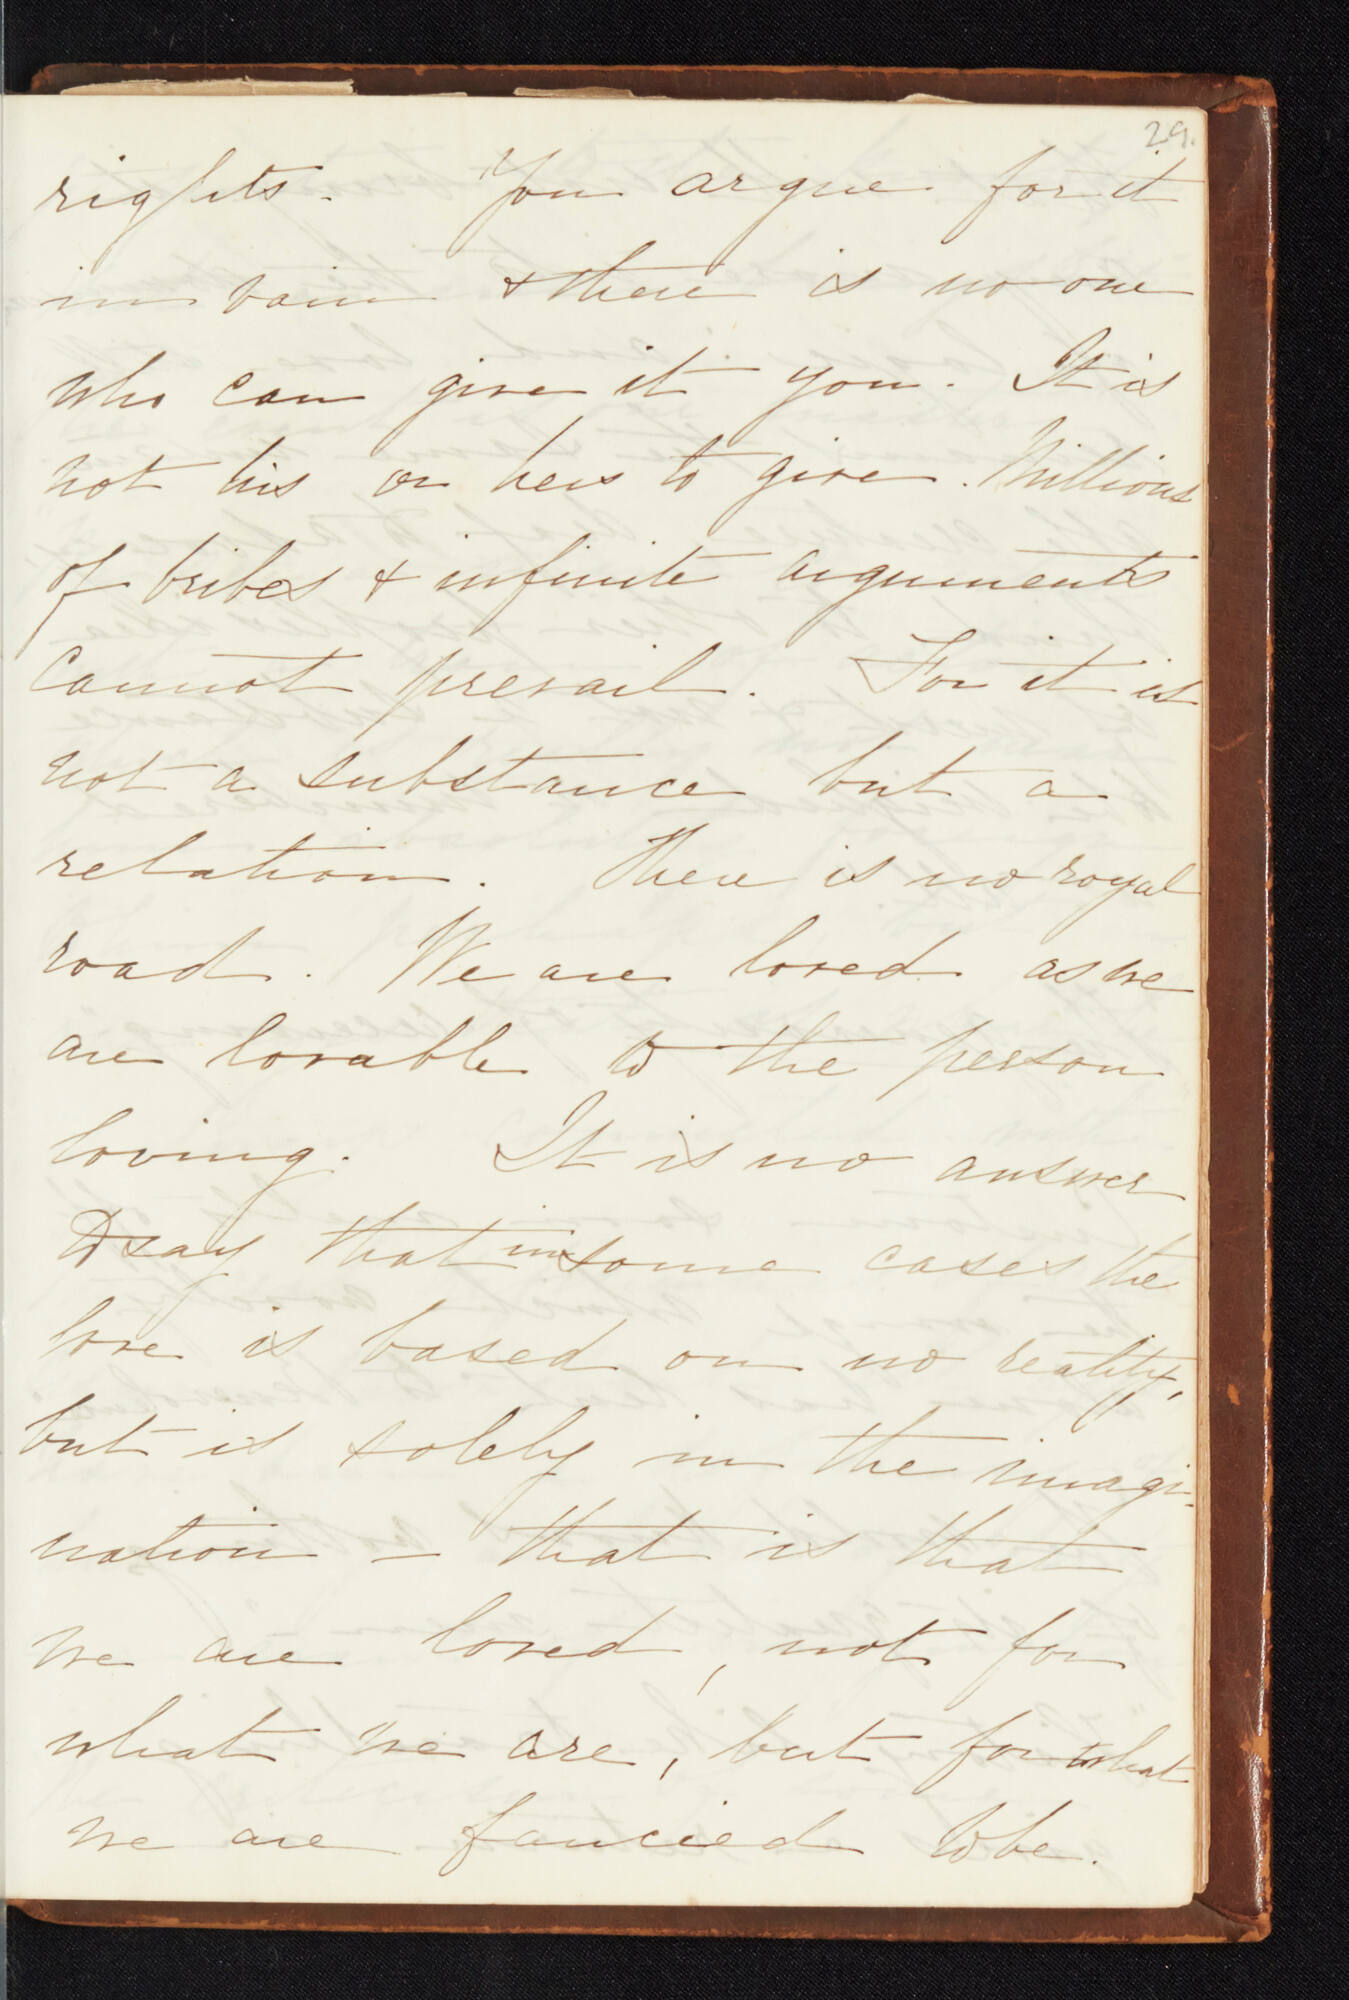 29.
rights. You argue for it
in vain & there is no one
who can give it you. It is
not his or hers to give. Millions
of bribes & infinite arguments
cannot prevail. For it is
not a substance but a
relation. There is no royal
road. We are loved as we
are lovable to the person
loving. It is no answer
to say that in some cases the
love is based on no reality,
but is solely in the imagi-
nation – that is that
we are loved, not for
what we are, but for what
we are fancied to be.